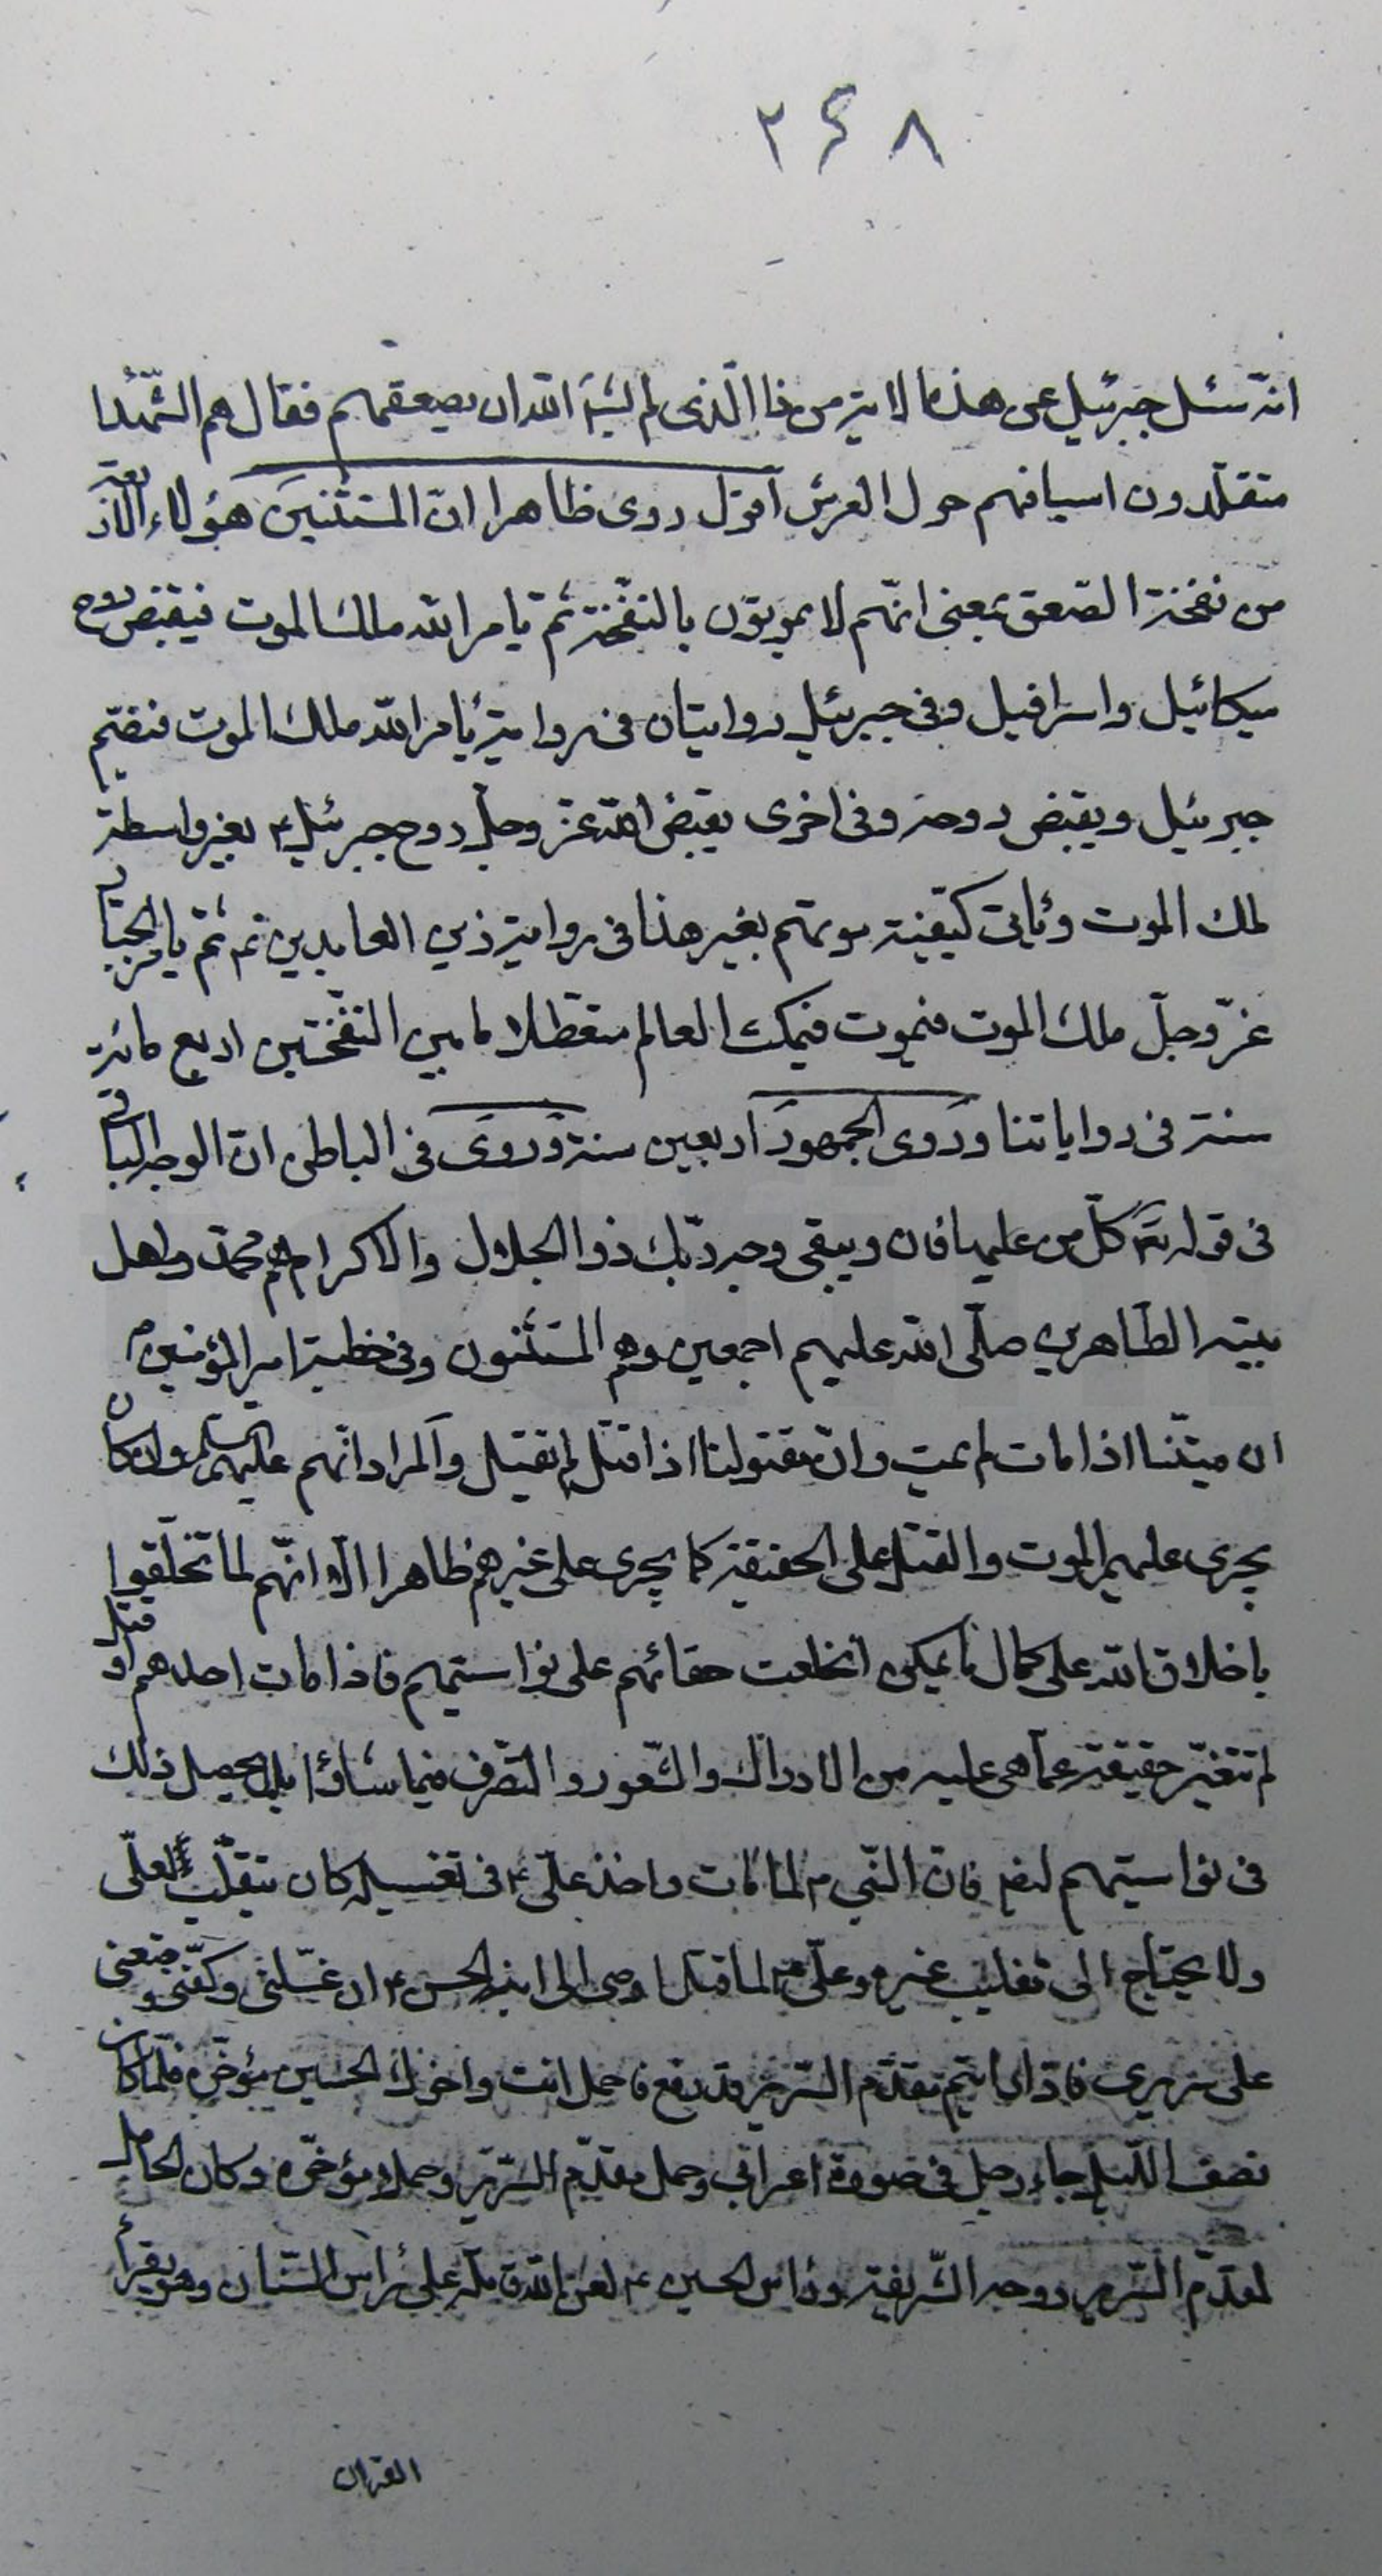 ۲۶۸
انّه سئل جبرئيل عن هذه الاية من ذا الّذى لم يشأ الله ان يصعقهم فقال هم الشّهدا
متقلّدون اسيافهم حول العرش اقول روى ظاهرا انّ المستثنين هؤلاء الاربعة
من نفخة الصّعق بمعنى انّهم لا يموتون بالنفخة ثمّ يامر الله ملك الموت فيقبض روح
ميكائيل واسرافيل وفى جبرئيل روايتان فى رواية يأمر الله ملك الموت فيضم
جبرئيل ويقبض روحه وفى اخرى يقبض الله عز وجلّ روح جبرئيل ع بغير واسطة
لملك الموت وتأتى كيفية موتهم بغير هذا فى رواية زين العابدين ع ثمّ يامر الجبّار
عزّ وجلّ ملك الموت فيموت فيمكث العالم متعطّلا ما بين النّفختين اربع مائة
سنة فى رواياتنا وروى الجمهور اربعين سنة وروى فى الباطن انّ الوجه الباقى
فى قوله تع كلّ من عليها فان ويبقى وجه ربّك ذو الجلال والاكرام هم محمّد واهل
بيته الطّاهرين صلّى الله عليهم اجمعين وهم المستثنون وفى خطبة امير المؤمنين ع
ان ميّتنا اذا مات لم يمت وانّ مقتولنا اذا قتل لم يقتل والمراد انّهم عليهم السلم وان كان
يجرى عليهم الموت والقتل على الحقيقة كما يجرى على غيرهم ظاهرا الّا انّهم لما تخلّقوا
باخلاق الله على كمال ما يمكن انخلعت حقائقهم على نواسيتهم فاذا مات احدهم او قتل
لم تتغيّر حقيقته عمّا هى عليه من الادراك والشّعور والتّصرف فيما شاؤا بل يحصل ذلك
فى نواسيتهم لهم فانّ النّبى ص لما مات واخذ علىّ ع فى تغسيله كان يتقلّب لعلّى
ولا يحتاج الى تقليب غيره وعلّى ع لما قتل اوصى الى ابنه الحسن ع ان غسّلنى وكفّنى وضعنى
على سريرى فاذا رايتم مقدّم السّرير قد رفع فاحمل انت واخوك الحسين مؤخّره فلمّا كان
نصف اللّيل جاء رجل فى صورة اعرابى وحمل مقدّم السّرير وحملا مؤخّره وكان الحامل
لمقدّم السّرير روحه الشّريفة وراس الحسين ع لعن الله قاتله على رأس السّنان وهو يقرأ
القران